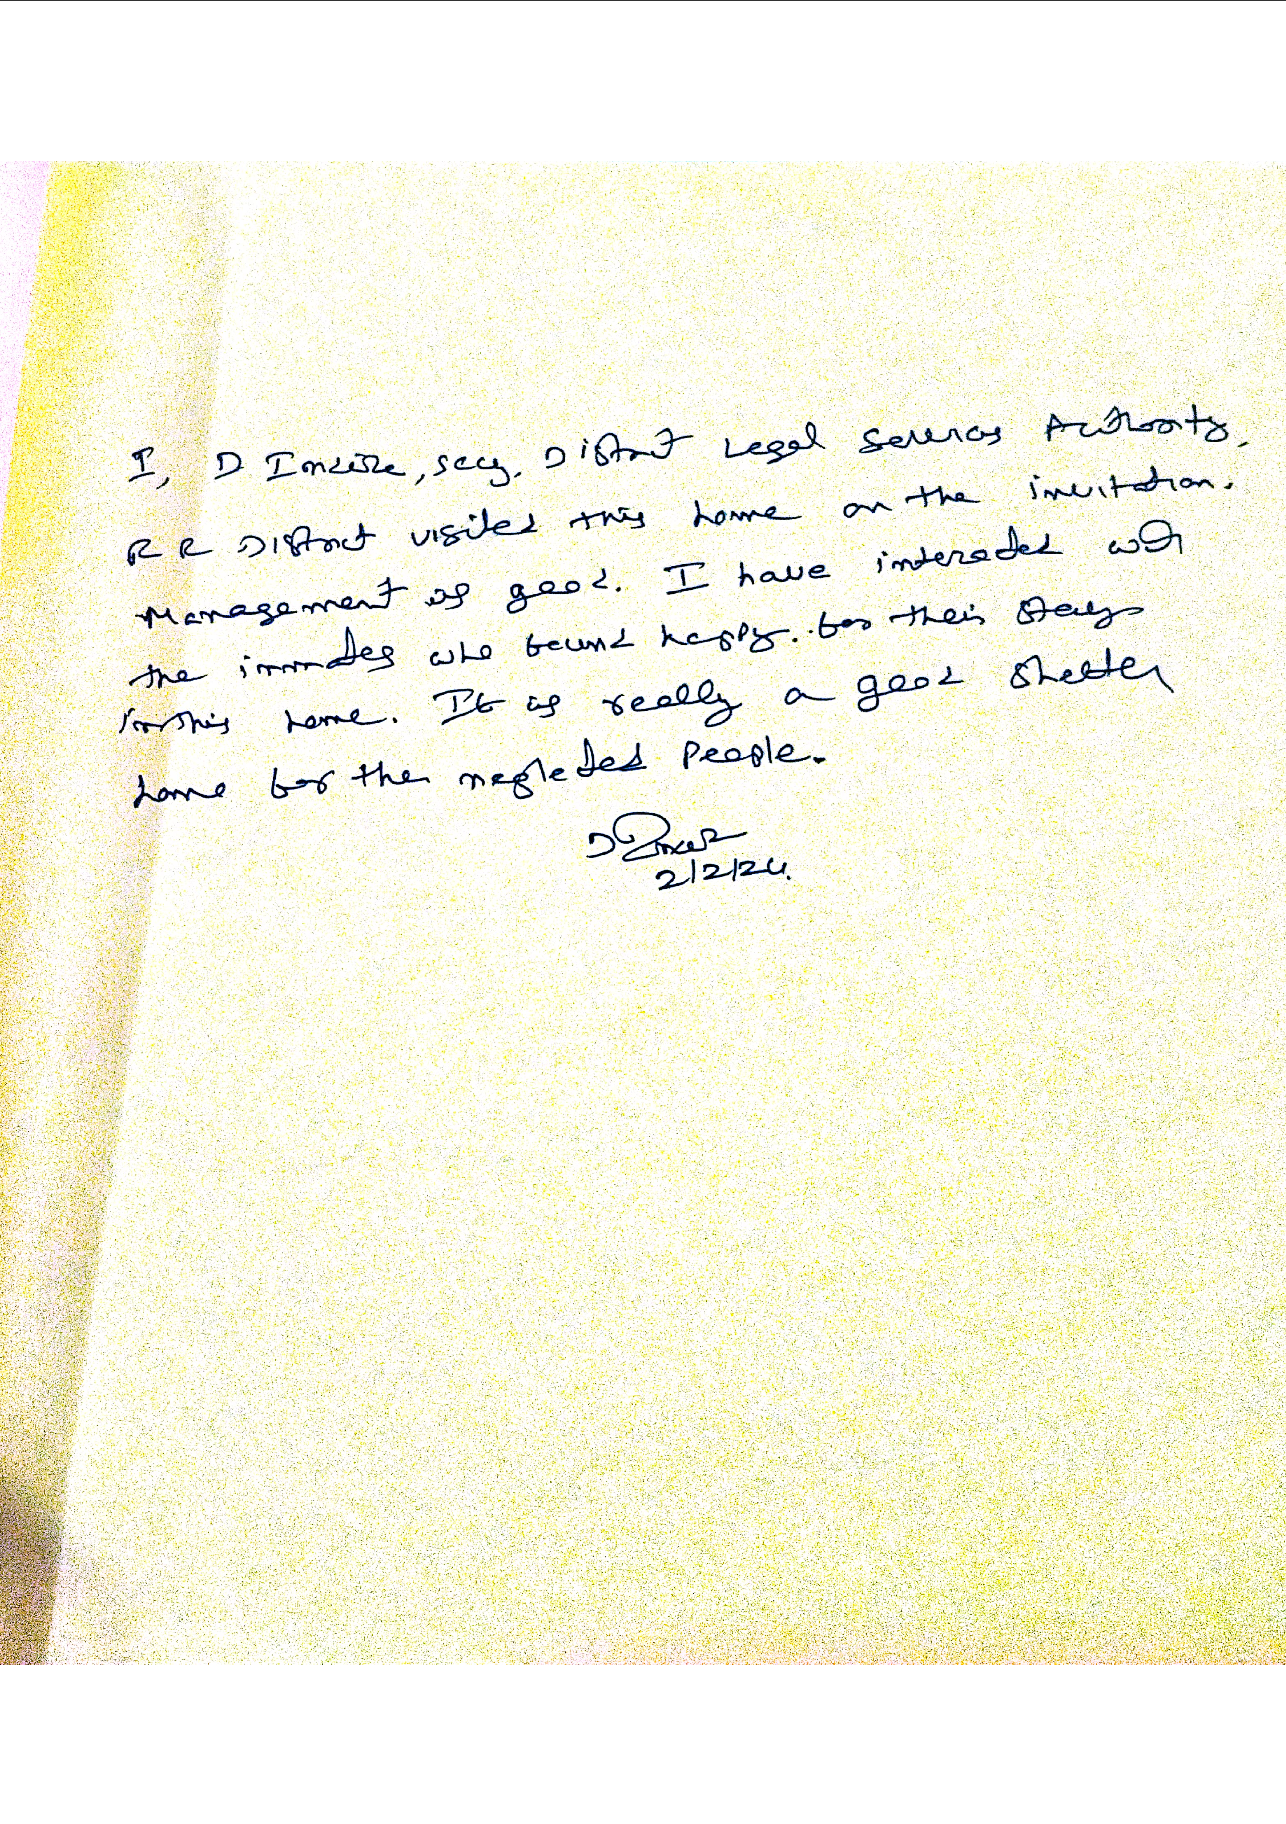 I, D , Secy. District Legal Services Authority,
R R District visited this home on the invitation.
Management is good. I have interacted with
the inmates who found happy. for their stay
in this home. It is really a good shelter
home for the neglected people.
2/2/24.